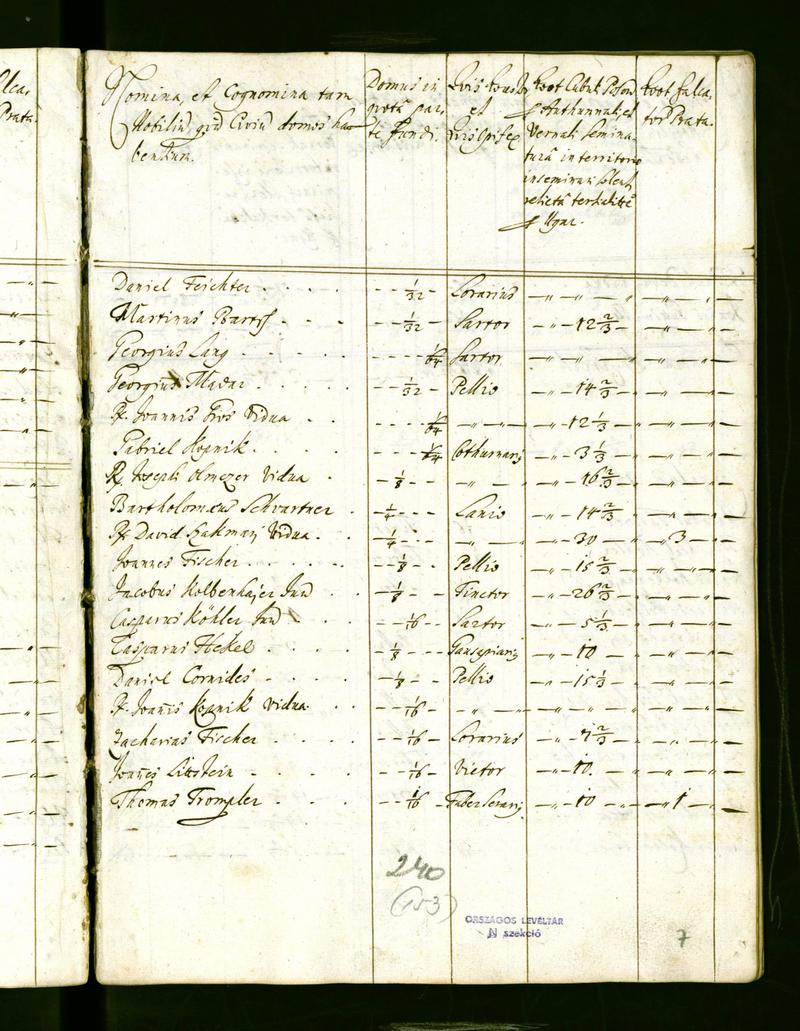 Nomina, et Cognomina tam
Nobiliū qvā Civiū domos ha
bentium.
Domus in
qvota par
te Fundi.
et
Opifex
Cubul. Poson
Authunnali, et
Vernali semina
turā in territorio
inseminari solent
relicta tertialitte
p Ugar.
falca
tor Prata.
Daniel Feichter . . . . - - 1/32 Lorarius - „ - „ - „ - „ - „ -
Martinus Bartsch . . . - - 1/32 Sartor - „ - 12 2/3 - „ - „ - „ -
Georgius Lang . . . . . - - - - 1/64 Sartor - „ - „ - „ - „ - „ -
Georgius Madar . . . . . - - 1/32 Pellio - „ - 14 2/3 - „ - „ - „ -
P. Joannis Gros Vidua . . - - - - 1/64 - „ - „ - - „ - 12 1/3 - „ - „ - „ -
Gabriel Kopnik . . . . . 1/64 Cothurnari9 - „ - 3 1/3 - „ - „ - „ -
R. Joseph Olmezer Vidua . - - 1/8 - - - „ - „ - „ - 16 2/3 - „ - „ - „ -
Bartholomæus Schvartner . - 1/4 - - - Lanio - „ - 14 2/3 - „ - „ - „ -
P. David Hakmani Vidua . - 1/4 - - - „ - „ - „ - 30 - „ - „ 3 - „ -
Joannes Fischer . . . . . - - 1/8 - - Pellio - „ - 15 2/3 - „ - „ - „ -
Jacobus Kolbenhajer Jun . . - - 1/8 - - Tinctor - „ - 26 2/3 - „ - „ - „ -
Casparus Köhler Jun . . . - - 1/16 - Sartor - „ - 5 1/3 - „ - „ - „ -
Casparus Hekel . . . . - - 1/8 - - - Gausapiari9 - „ - 10 - „ - „ - „ -
Daniel Cornides . . . . - - 1/8 - - Pellio - „ - 15 1/3 - „ - „ - „ -
P. Joañis Kopnik Vidua . . - - 1/16 - - „ - „ - „ - „ - „ - „ - „ -
Zacharias Fischer . . . . - - 1/16 - Lorarius - „ - 7 2/3 - „ - „ - „ -
Joañes Littstein . . . . - - 1/16 - Vietor - „ - 10. - „ - „ - „ -
Thomas Trompler . . . - - 1/16 - Faber Serari9 - „ - 10 - „ - „ 1 - „ -
240
(153)
ORSZÁGOS LEVÉLTÁR
N szekció
7